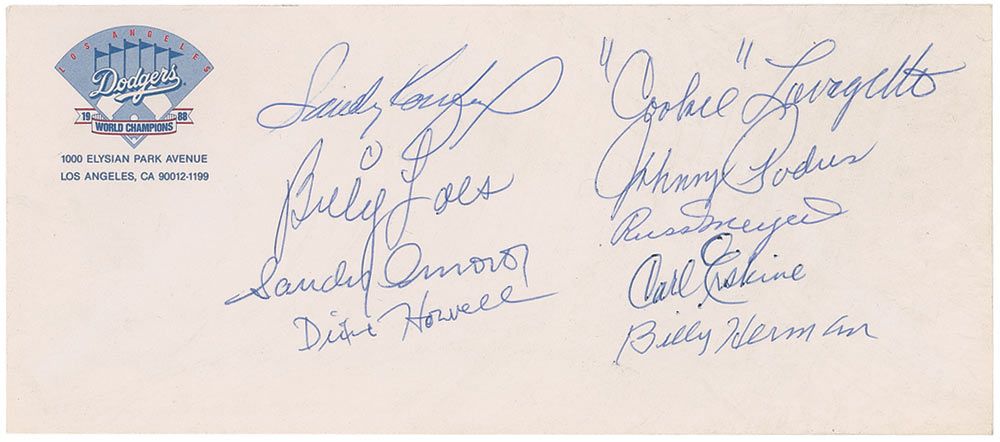 LOS ANGELES
Dodgers
1988
WORLD CHAMPIONS
1000 ELYSIAN PARK AVENUE
LOS ANGELES, CA 90012-1199
Sandy Koufax
Billy Loes
Sandy Amoros
Dixie Howell
"Cookie" Lavagetto
Johnny Podres
Russ Meyer
Carl Erskine
Billy Herman